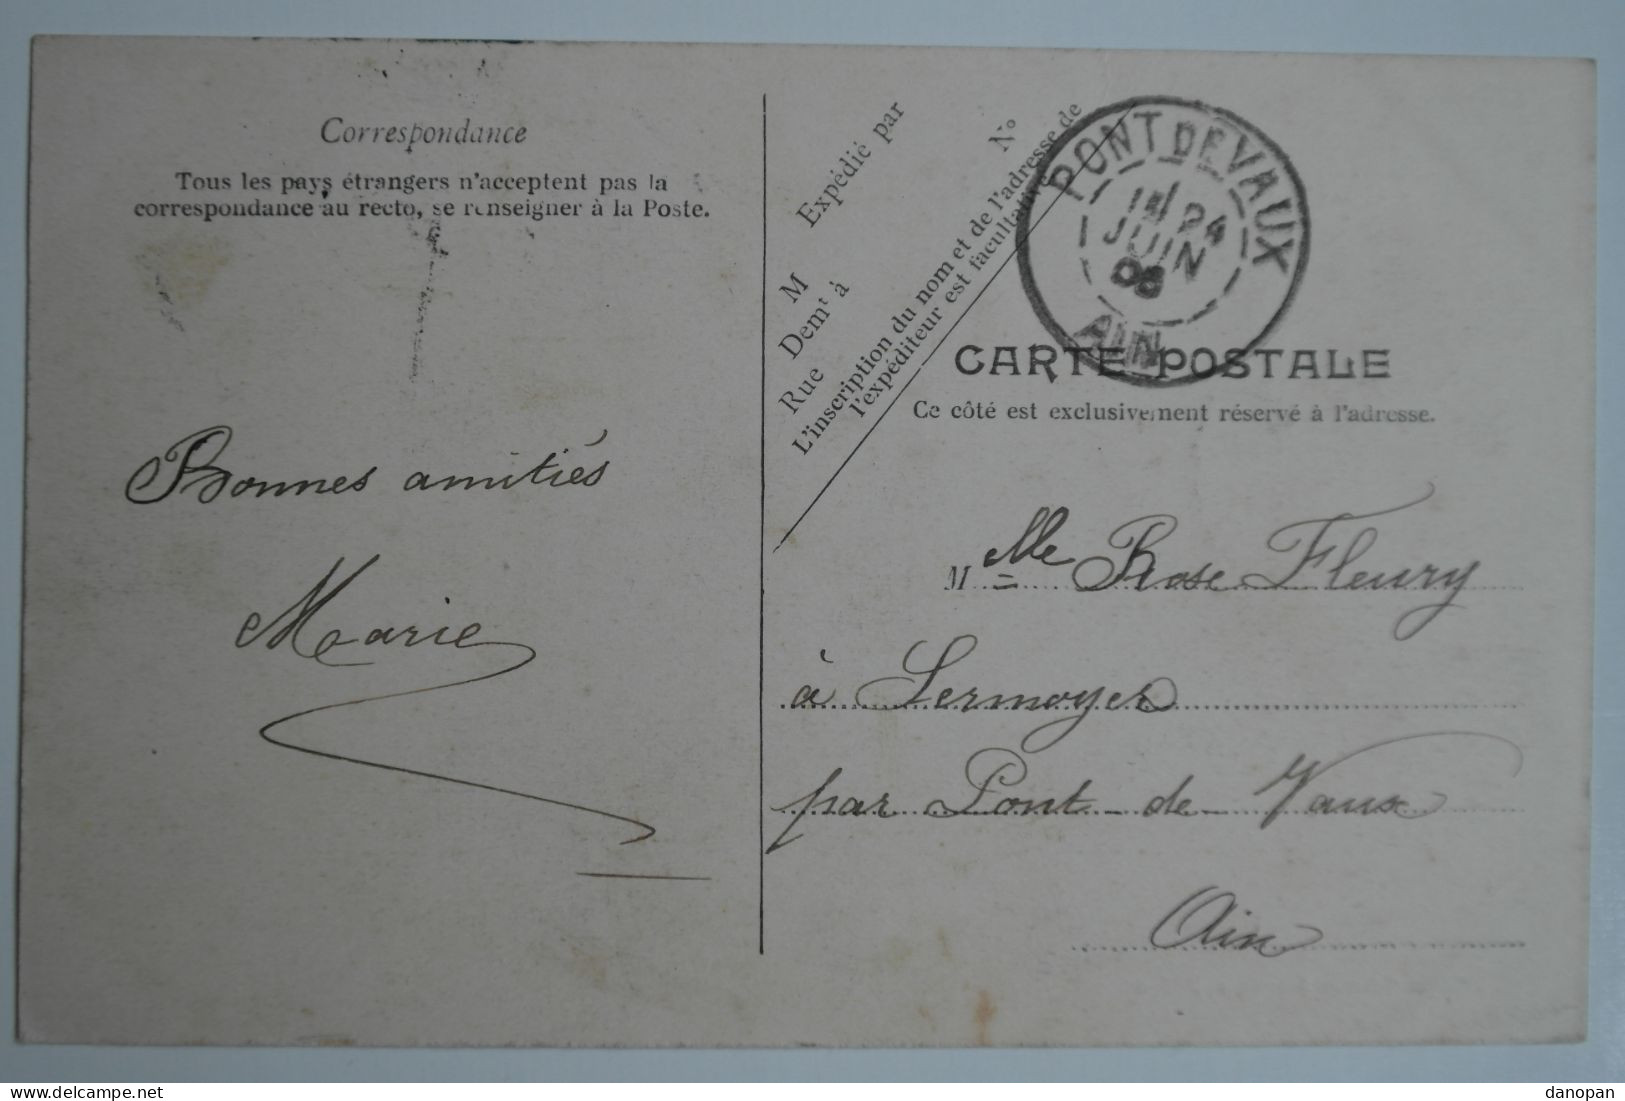 Correspondance
Tous les pays étrangers n'acceptent pas la
correspondance au recto, se renseigner à la Poste.
Bonnes amitiés
Marie
Expédié par
M
Demt à
Rue
No
L'inscription du nom et de l'adresse de
l'expéditeur est facultative
PONT DE VAUX
24
JUIN
AIN
CARTE POSTALE
Ce côté est exclusivement réservé à l'adresse.
Mlle Rose Fleury
à Sermoyer
par Pont-de-Vaux
Ain
danopan